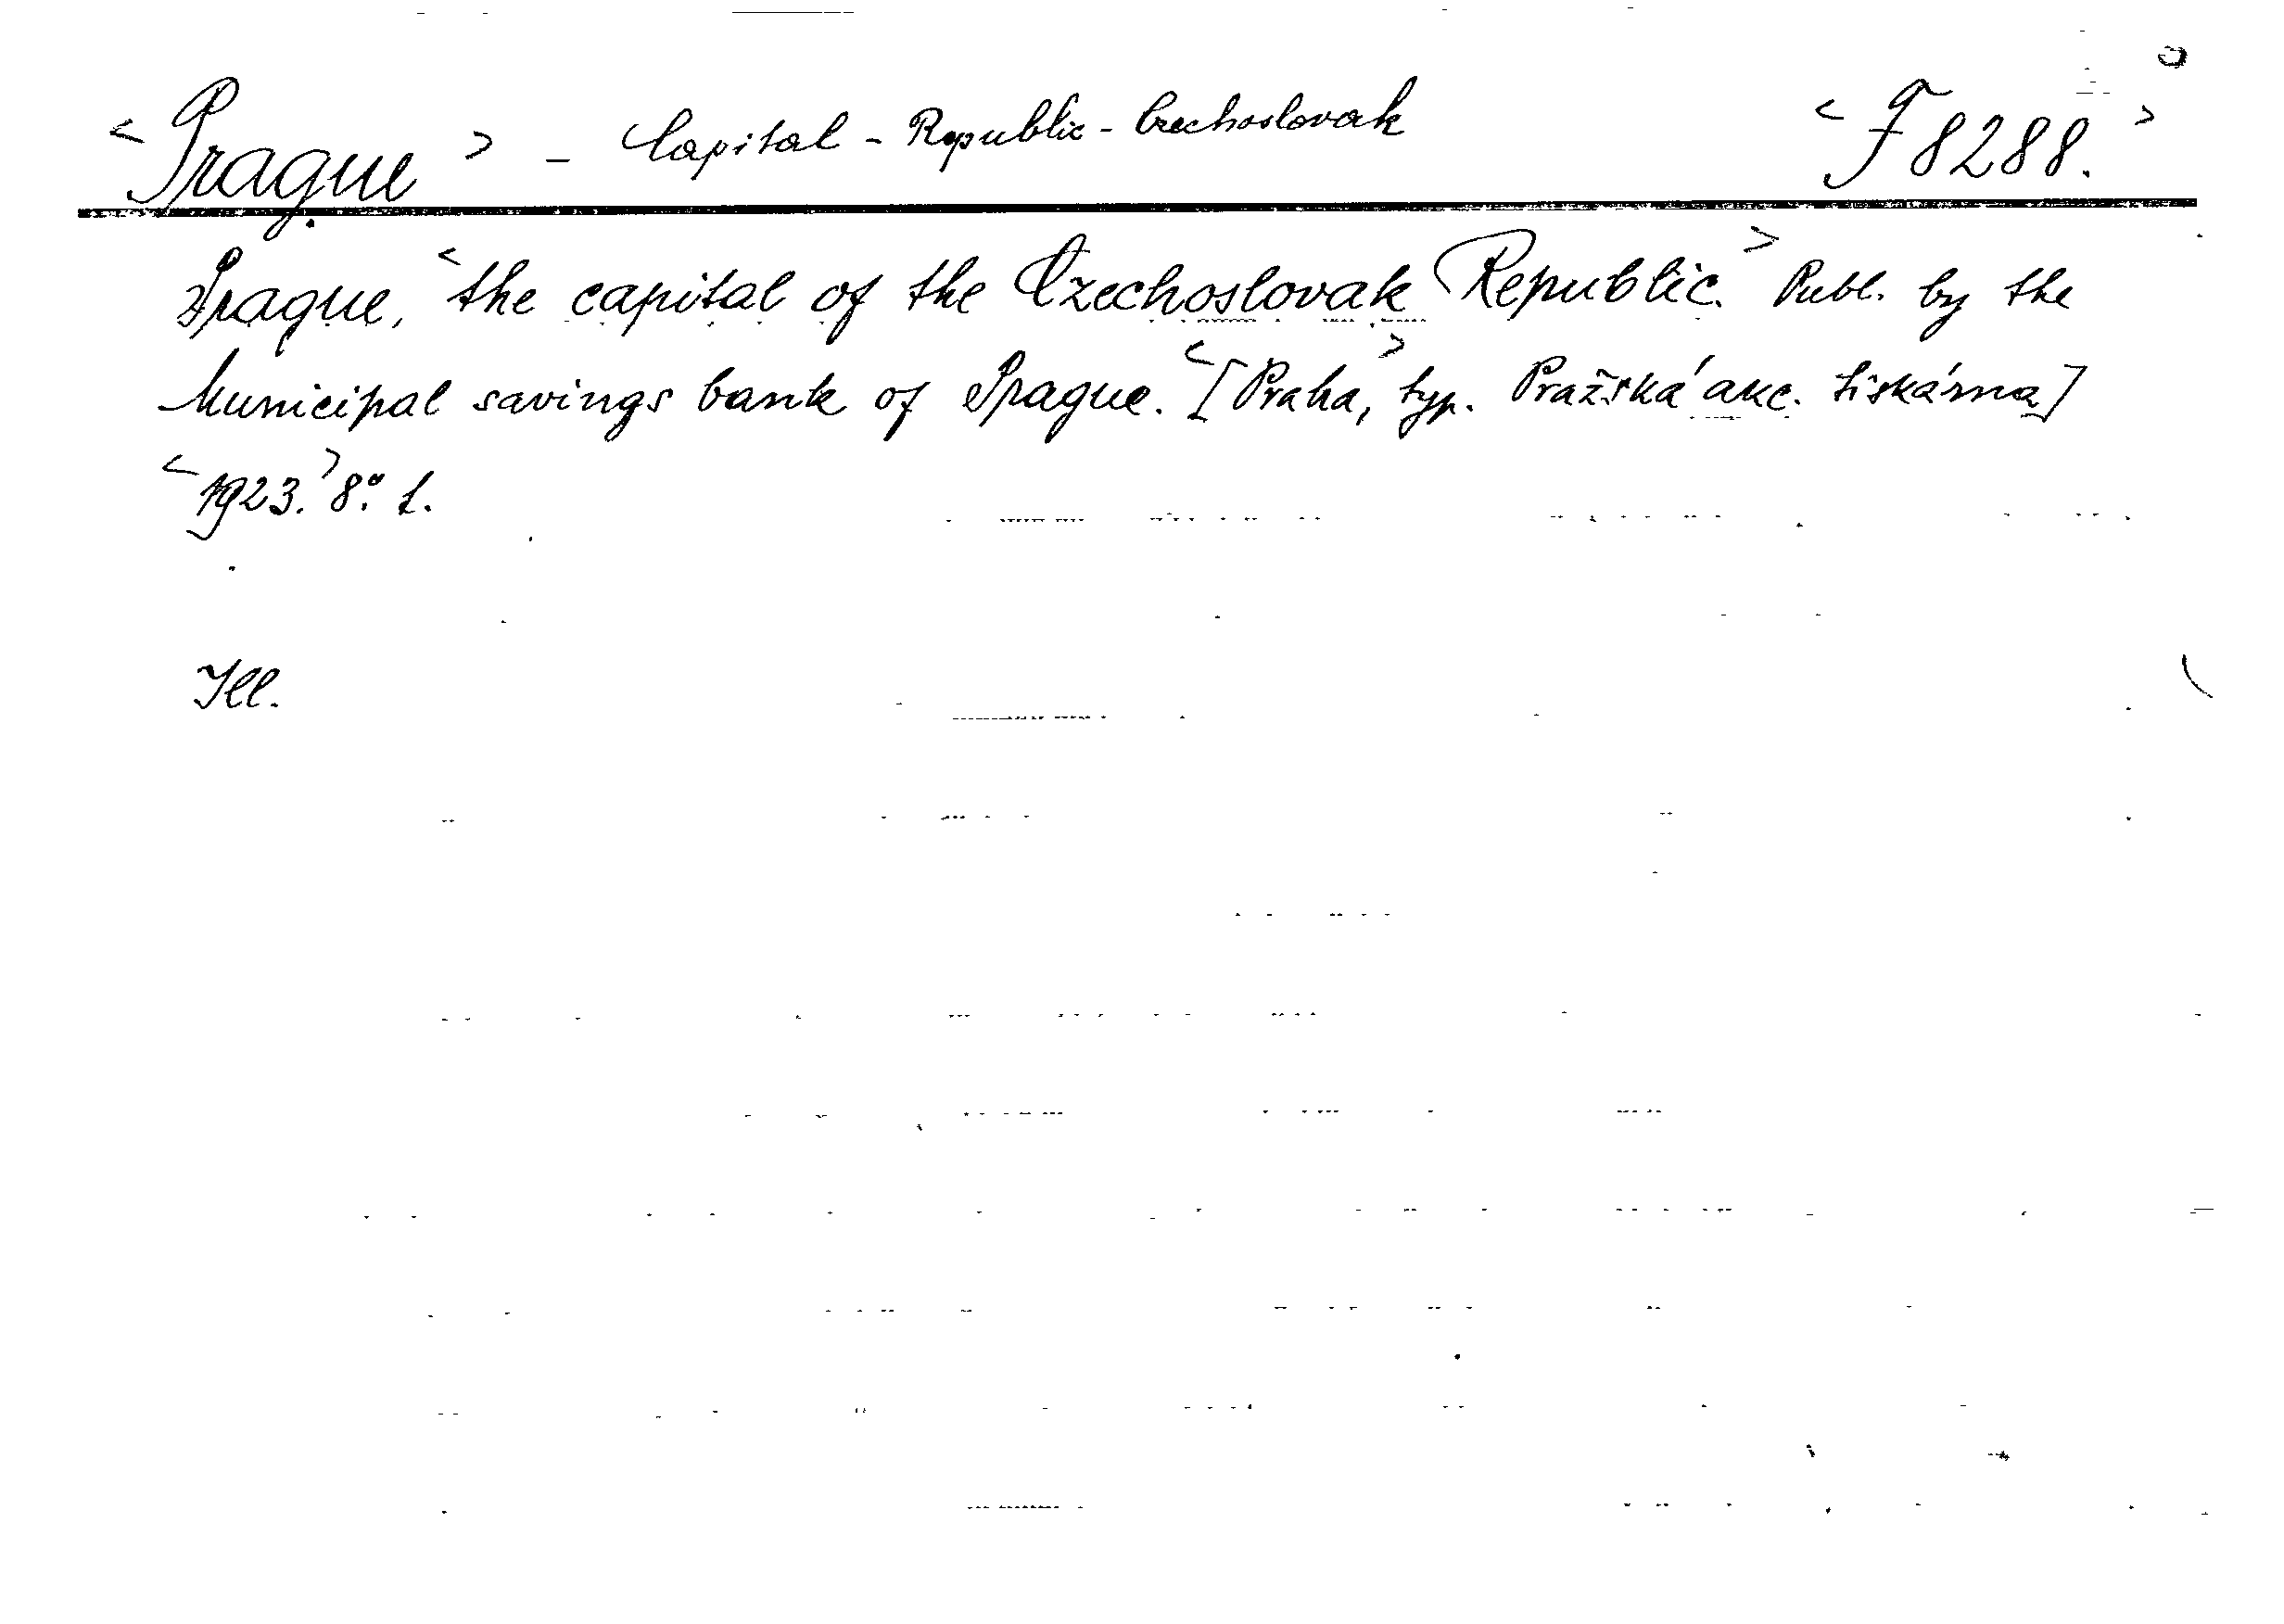 <Prague> - Capital - Republic - Czechoslovak <F 8288.>
Prague, <the capital of the Czechoslovak Republic.> Publ. by the
Municipal savings bank of Prague. <[Praha,> typ. Pražská akc. tiskárna]
<1923.> 8°. t.
Ill.